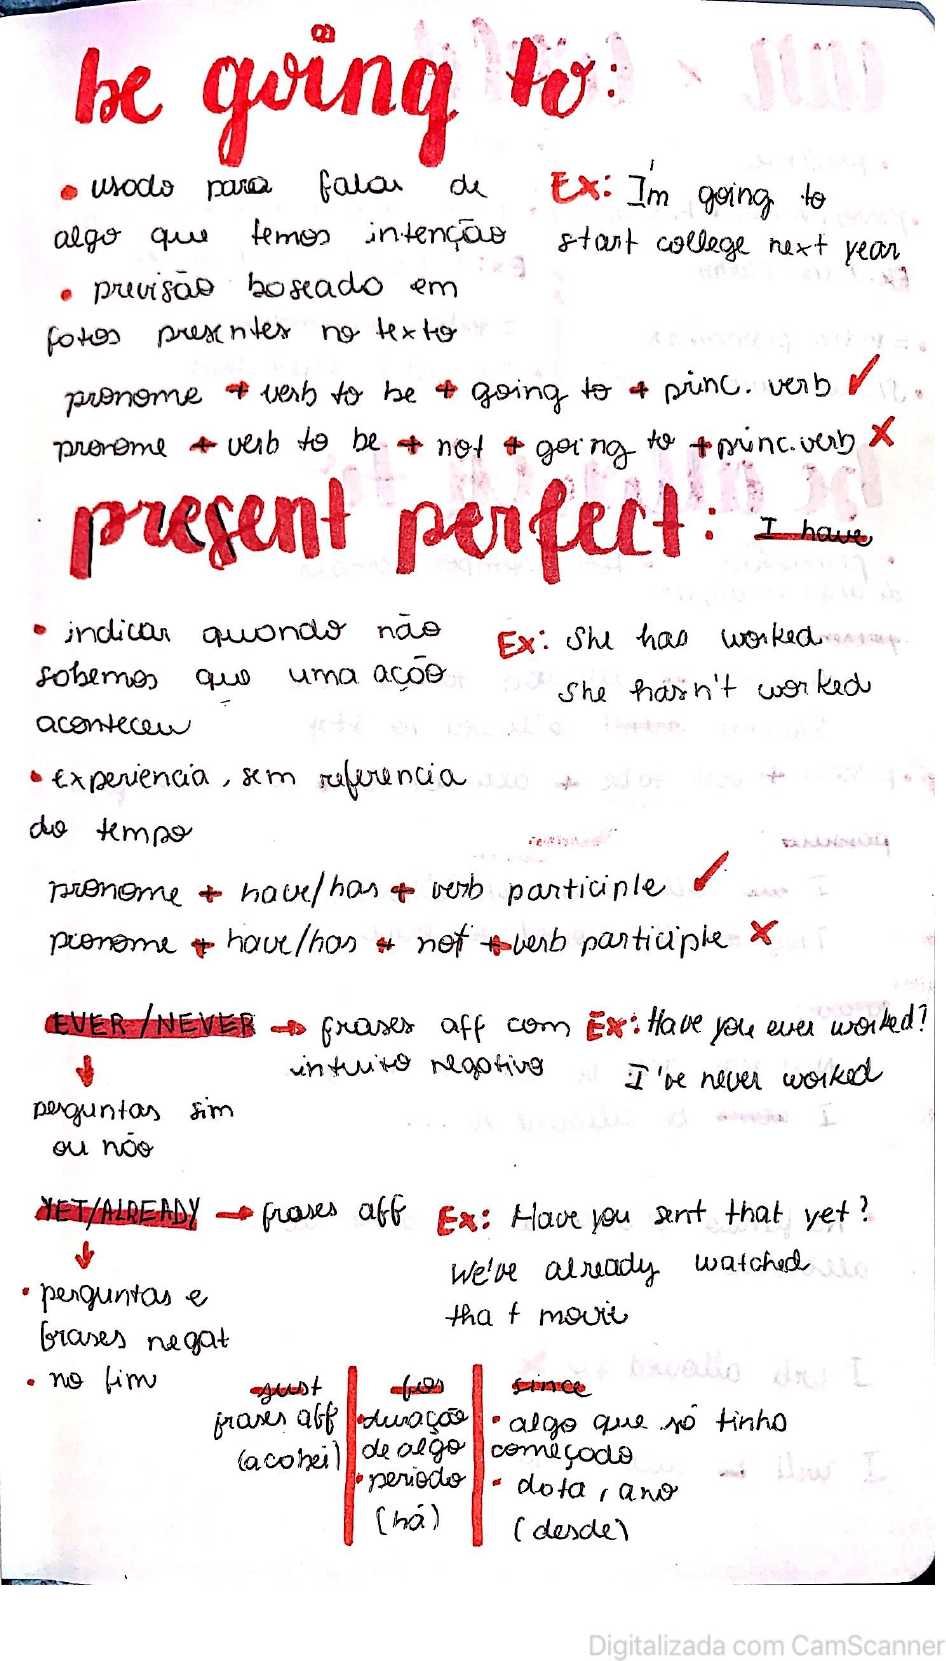 be going to:
• usado para falar de
algo que temos intenção
Ex: I'm going to
start college next year
• previsão baseado em
fatos presentes no texto
pronome + verb to be + going to + princ. verb ✓
pronome + verb to be + not + going to + princ. verb X
present perfect: I have
• indicar quando não
sabemos que uma ação
aconteceu
Ex: She has worked
She hasn't worked
• experiencia, sem referencia
do tempo
pronome + have/has + verb participle ✓
pronome + have/has + not + verb participle X
EVER/NEVER → frases aff com
intuito negativo
Ex: Have you ever worked?
I've never worked
↓
perguntas sim
ou não
YET/ALREADY → frases aff
Ex: Have you sent that yet?
We've already watched
that movie
↓
• perguntas e
frases negat
• no fim
just
frases aff
(acabei)
for
• duração
de algo
• periodo
(há)
since
• algo que só tinha
começado
• data, ano
(desde)
Digitalizada com CamScanner